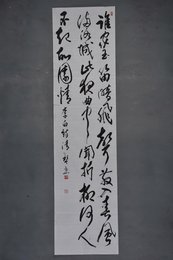 誰家玉笛暗飛聲散入春風
滿洛城此夜曲中聞折柳何人
不起故園情 李白詩